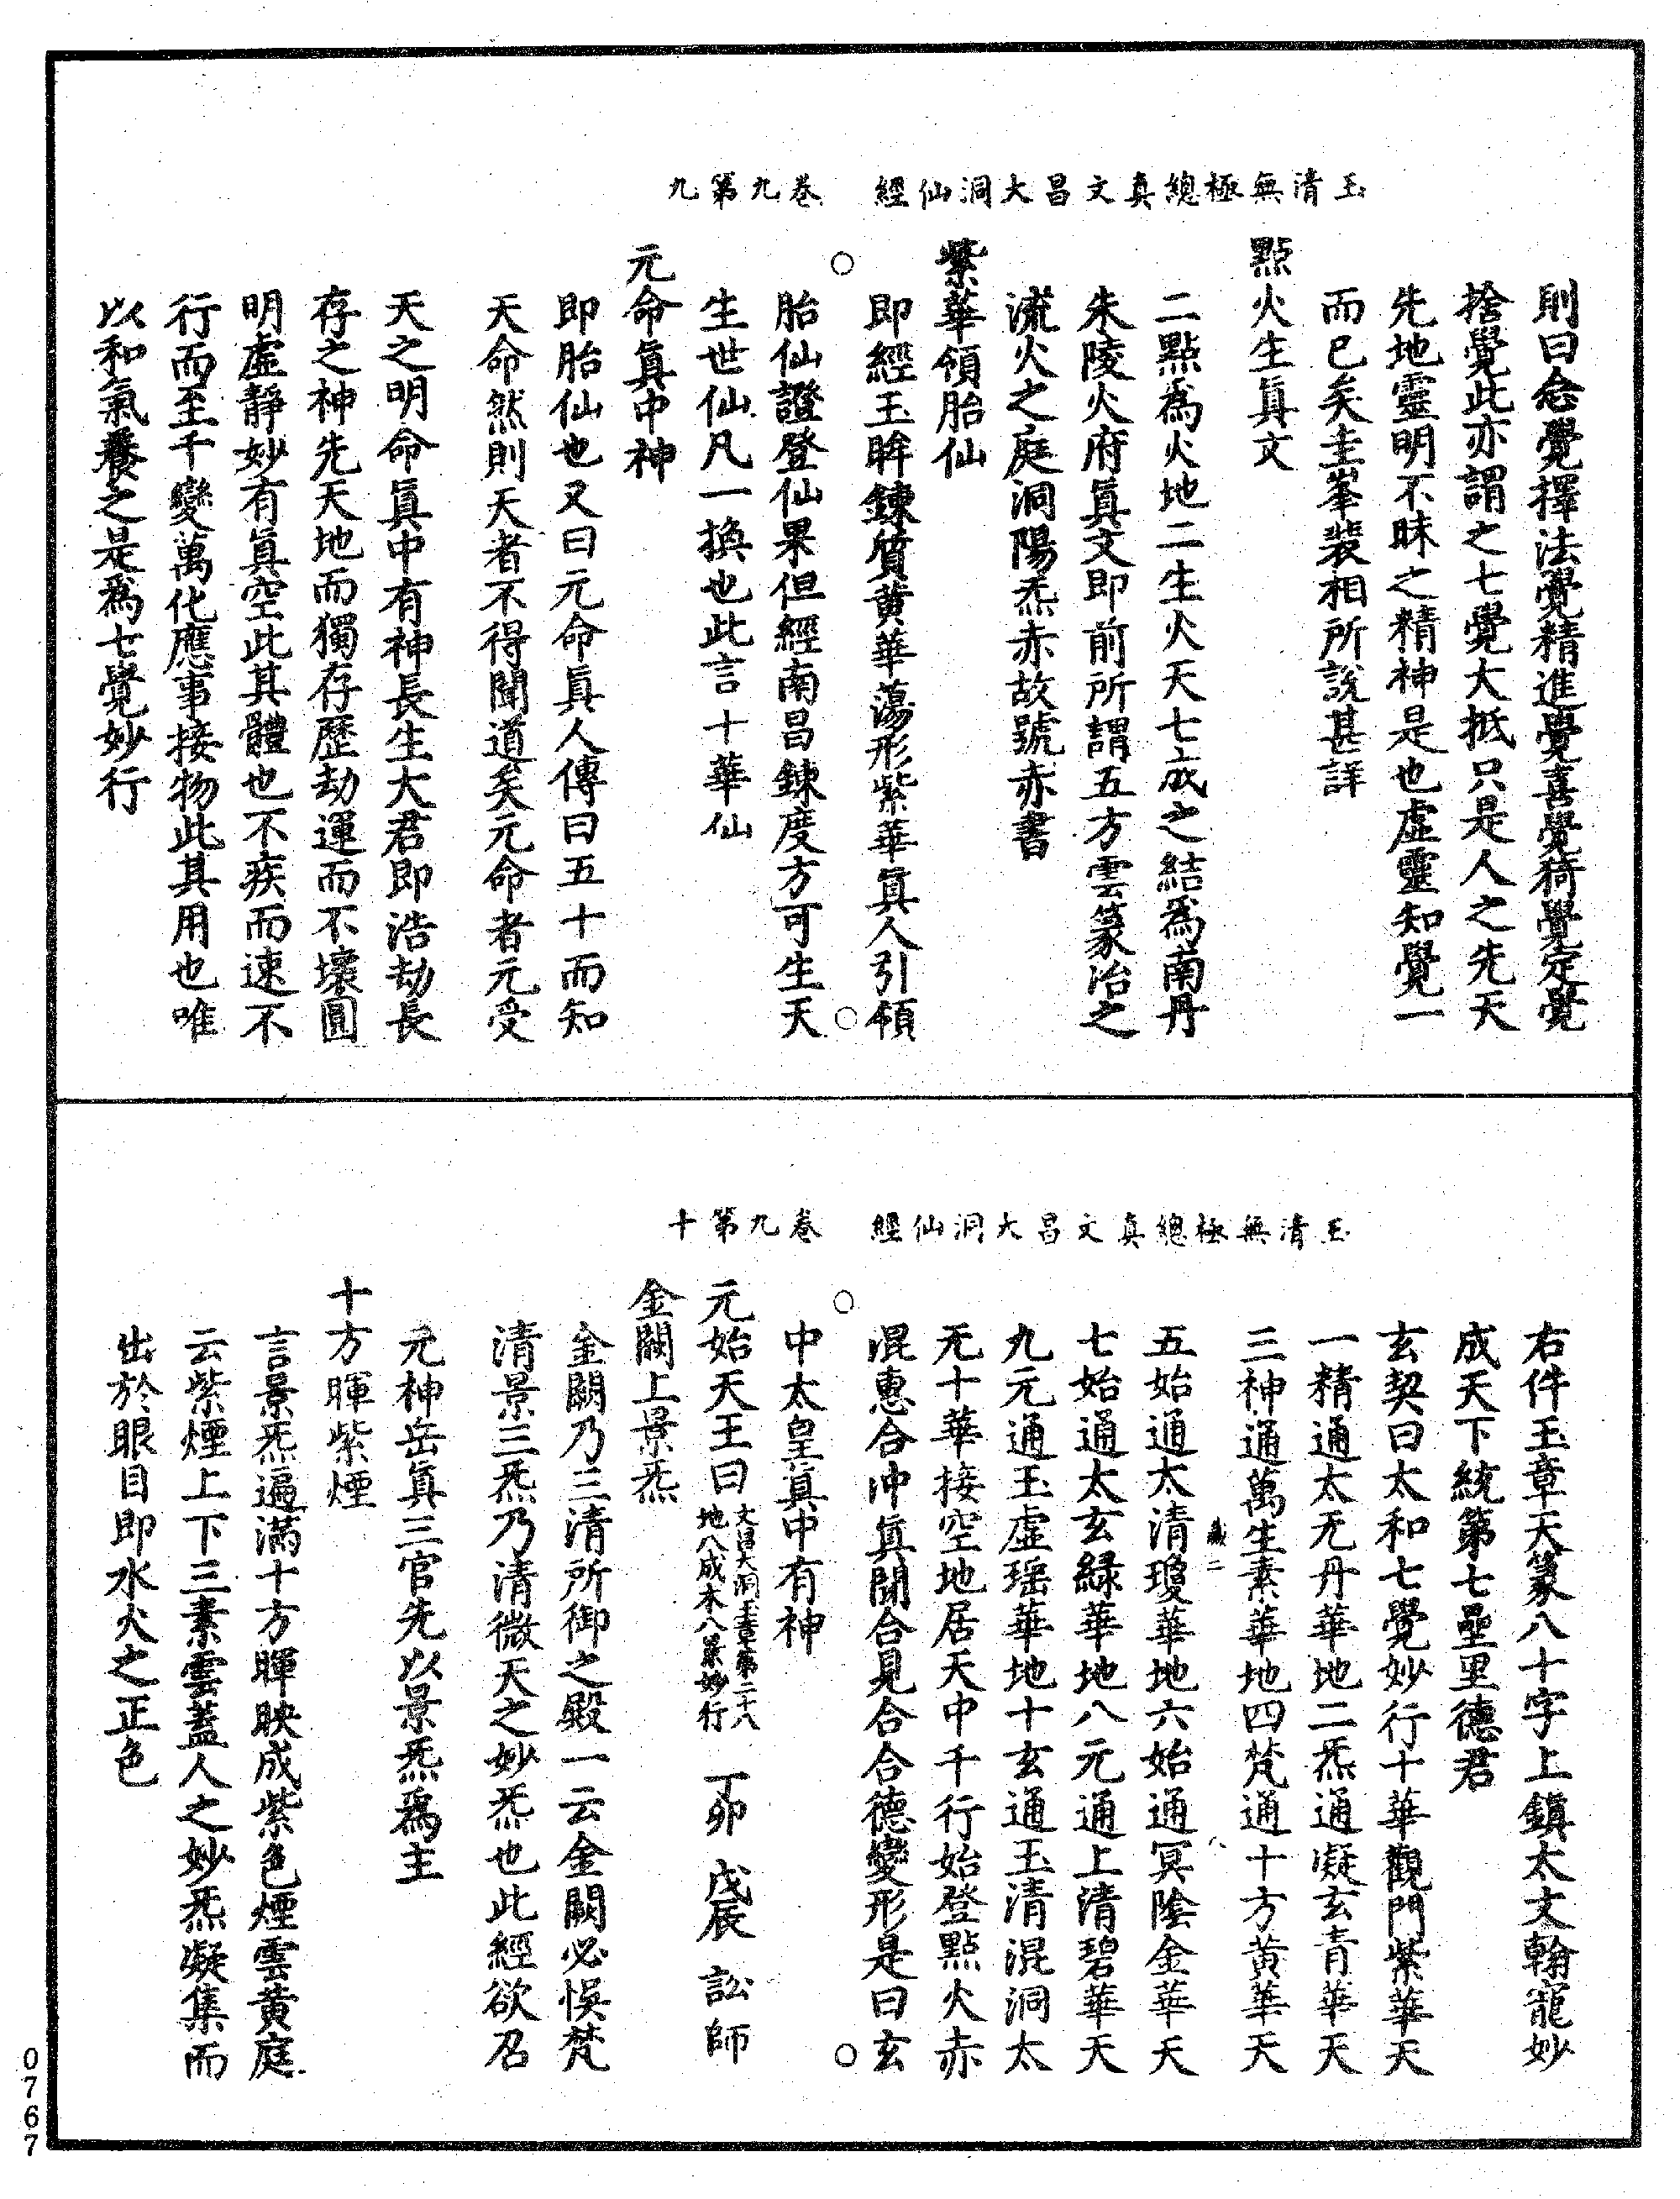 玉清無極總真文昌大洞仙經　卷九第九
則曰念覺擇法覺精進覺喜覺猗覺定覺
捨覺此亦謂之七覺大抵只是人之先天
先地靈明不昧之精神是也虛靈知覺一
而已矣圭峯裴相所說甚詳
點火生眞文
二點爲火地二生火天七成之結爲南丹
朱陵火府眞文即前所謂五方雲篆冶之
流火之庭洞陽炁赤故號赤書
紫華領胎仙
即經玉眸鍊質黃華蕩形紫華眞人引領
胎仙證登仙果但經南昌鍊度方可生天
生世仙凡一換也此言十華仙
元命眞中神
即胎仙也又曰元命眞人傳曰五十而知
天命然則天者不得聞道矣元命者元受
天之明命眞中有神長生大君即浩劫長
存之神先天地而獨存歷劫運而不壞圓
明虛靜妙有眞空此其體也不疾而速不
行而至千變萬化應事接物此其用也唯
以和氣養之是爲七覺妙行
玉清無極總真文昌大洞仙經　卷九第十
右件玉章天篆八十字上鎭太文翰寵妙
成天下統第七壘里德君
玄契曰太和七覺妙行十華觀門紫華天
一精通太无丹華地二炁通凝玄青華天
三神通萬生素華地四梵通十方黃華天
五始通太清瓊華地六始通冥陰金華天
七始通太玄綠華地八元通上清碧華天
九元通玉虛瑶華地十玄通玉清混洞太
无十華接空地居天中千行始登點火赤
混惠合冲眞聞合見合合德變形是曰玄
中太皇眞中有神
元始天王曰 文昌大洞玉章第二十八 地八成木八景妙行 丁卯 戊辰 訟師
金闕上景炁
金闕乃三清所御之殿一云金闕必悞梵
清景三炁乃清微天之妙炁也此經欲召
元神岳眞三官先以景炁爲主
十方暉紫煙
言景炁遍滿十方暉映成紫色煙雲黃庭
云紫煙上下三素雲蓋人之妙炁凝集而
出於眼目即水火之正色
0767